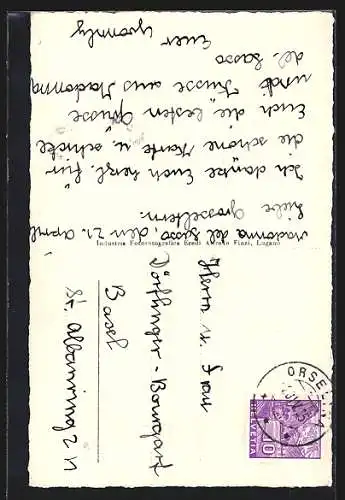 Madonna del Sasso, den 21. April
Liebe Grosseltern.
Ich danke Euch herzl. für
die schöne Karte u. schicke
Euch die besten Grüsse
und Küsse aus Madonna
del. Sasso
Euer
Industria Fotocotografica Eredi Alfredo Finzi, Lugano
Herrn u. Frau
Dörflinger - Bourgart
Basel
St. Albanring 211
ORSELINA
HELVETIA
10